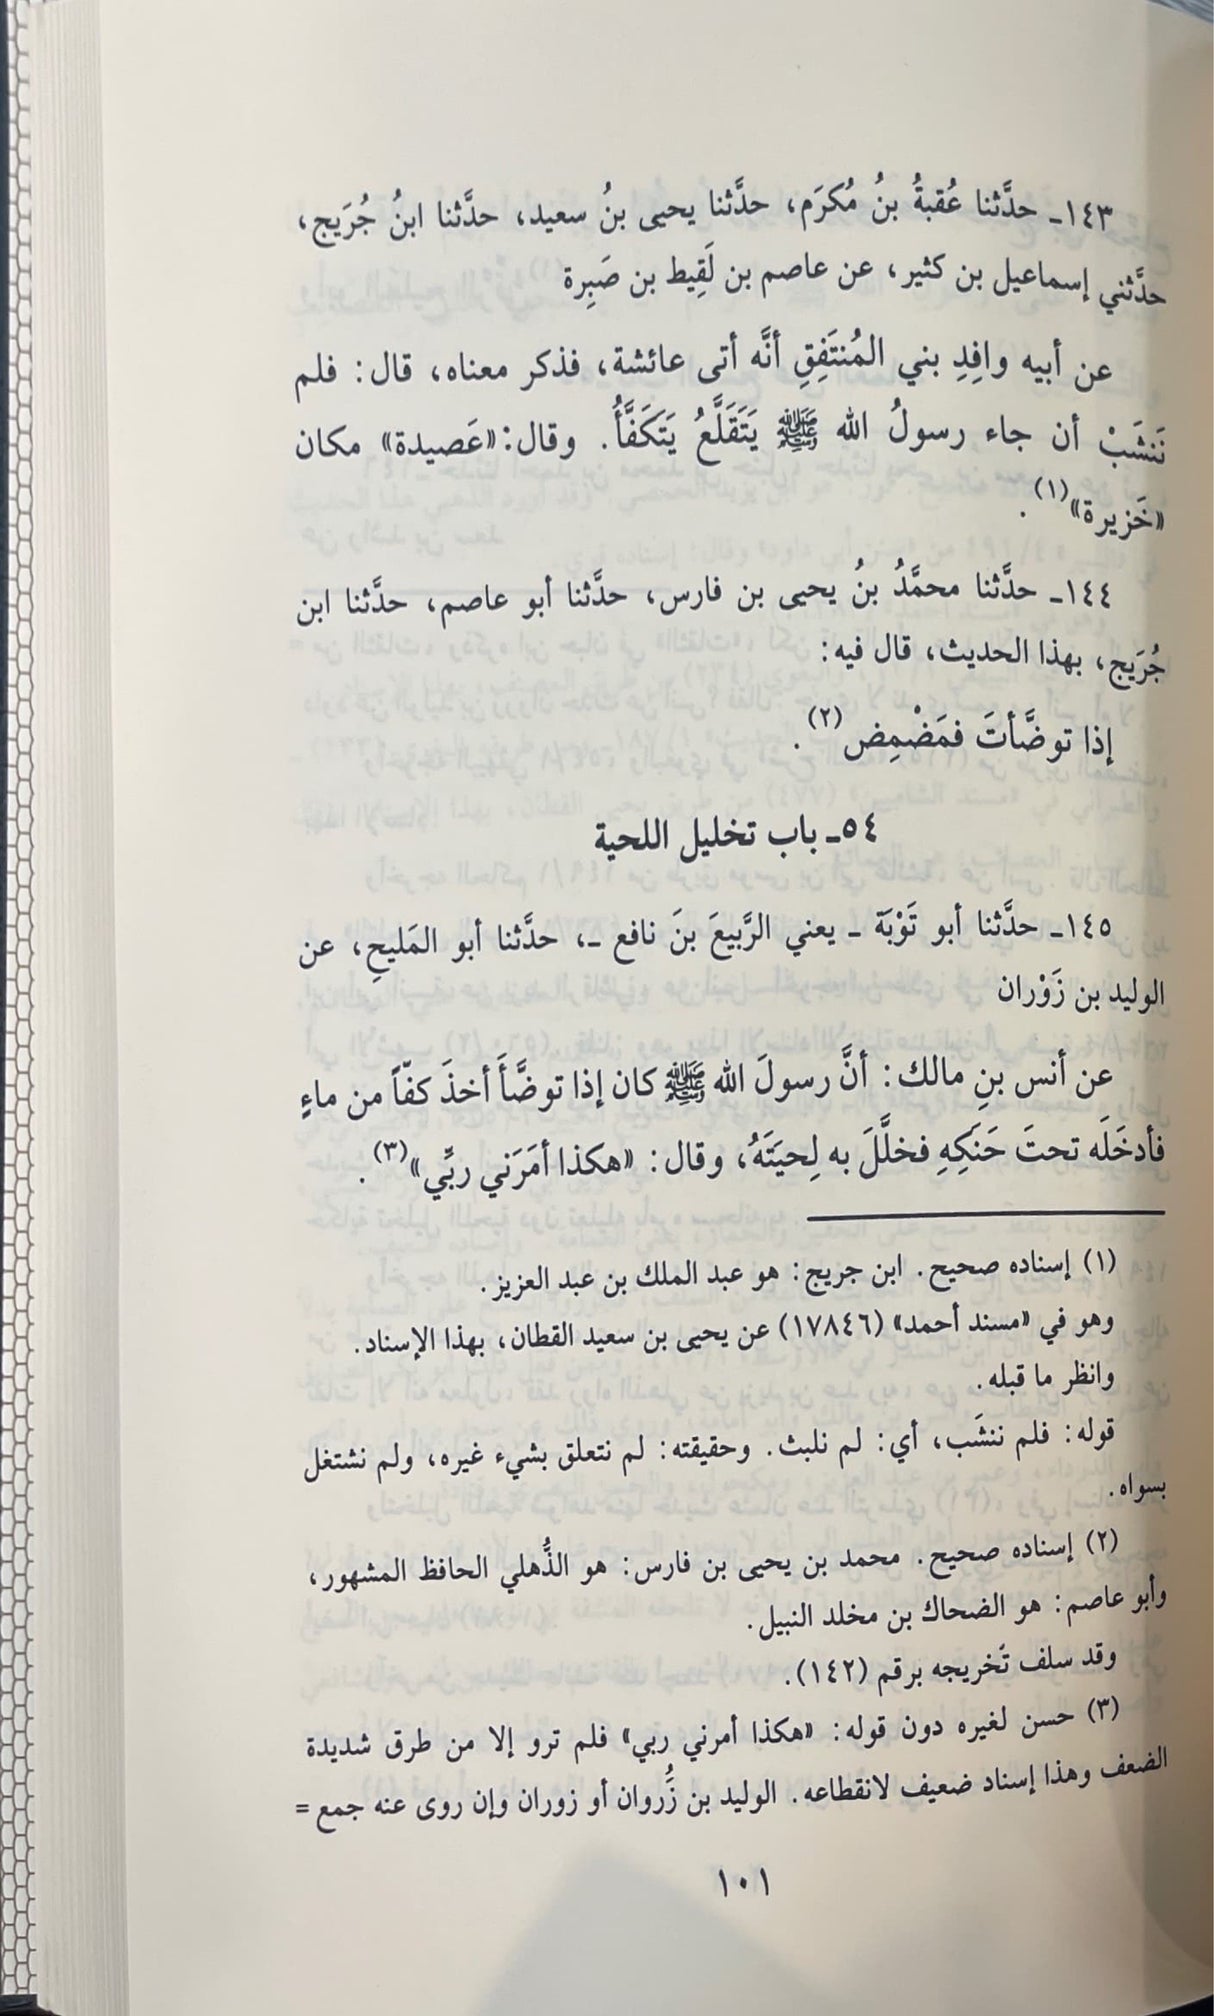 ١٤٣ـ حدَّثنا عُقبةُ بنُ مُكرَم، حدَّثنا يحيى بنُ سعيد، حدَّثنا ابنُ جُرَيج،
حدَّثني إسماعيل بن كثير، عن عاصم بن لَقِيط بن صَبِرة
عن أبيه وافِدِ بني المُنتَفِقِ أنَّه أتى عائشة، فذكر معناه، قال: فلم
نَنشَبْ أن جاء رسولُ الله ﷺ يَتَقَلَّعُ يَتَكَفَّأُ. وقال: «عَصيدة» مكان
«خَزيرة»(١).
١٤٤ـ حدَّثنا محمَّدُ بنُ يحيى بن فارس، حدَّثنا أبو عاصم، حدَّثنا ابن
جُرَيج، بهذا الحديث، قال فيه:
إذا توضَّأتَ فمَضْمِض(٢).
٥٤ـ باب تخليل اللحية
١٤٥ـ حدَّثنا أبو تَوْبَة ـ يعني الرَّبيعَ بنَ نافع ـ، حدَّثنا أبو المَليحِ، عن
الوليد بن زَوْران
عن أنس بنِ مالك: أنَّ رسولَ الله ﷺ كان إذا توضَّأَ أخذَ كفّاً من ماءٍ
فأدخَلَه تحتَ حَنَكِهِ فخلَّلَ به لِحيَتَهُ، وقال: «هكذا أمَرَني ربِّي»(٣).
(١) إسناده صحيح. ابن جريج: هو عبد الملك بن عبد العزيز.
وهو في «مسند أحمد» (١٧٨٤٦) عن يحيى بن سعيد القطان، بهذا الإسناد.
وانظر ما قبله.
قوله: فلم ننشَب، أي: لم نلبث. وحقيقته: لم نتعلق بشيء غيره، ولم نشتغل
بسواه.
(٢) إسناده صحيح. محمد بن يحيى بن فارس: هو الذُّهلي الحافظ المشهور،
وأبو عاصم: هو الضحاك بن مخلد النبيل.
وقد سلف تخريجه برقم (١٤٢).
(٣) حسن لغيره دون قوله: «هكذا أمرني ربي» فلم ترو إلا من طرق شديدة
الضعف وهذا إسناد ضعيف لانقطاعه. الوليد بن زَُروان أو زوران وإن روى عنه جمع =
١٠١